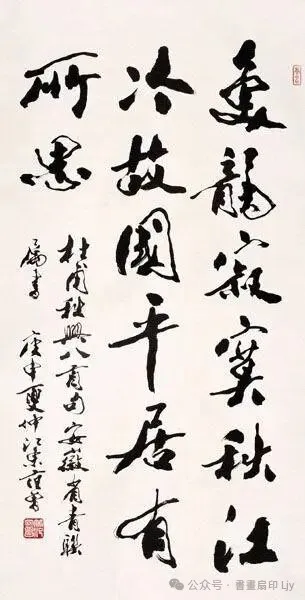 魚龍寂寞秋江
冷故國平居有
所思
杜甫秋興八首句安徽省青聯
屬書 庚申夏仲江東范曾
公众号 · 書畫扇印 Ljy